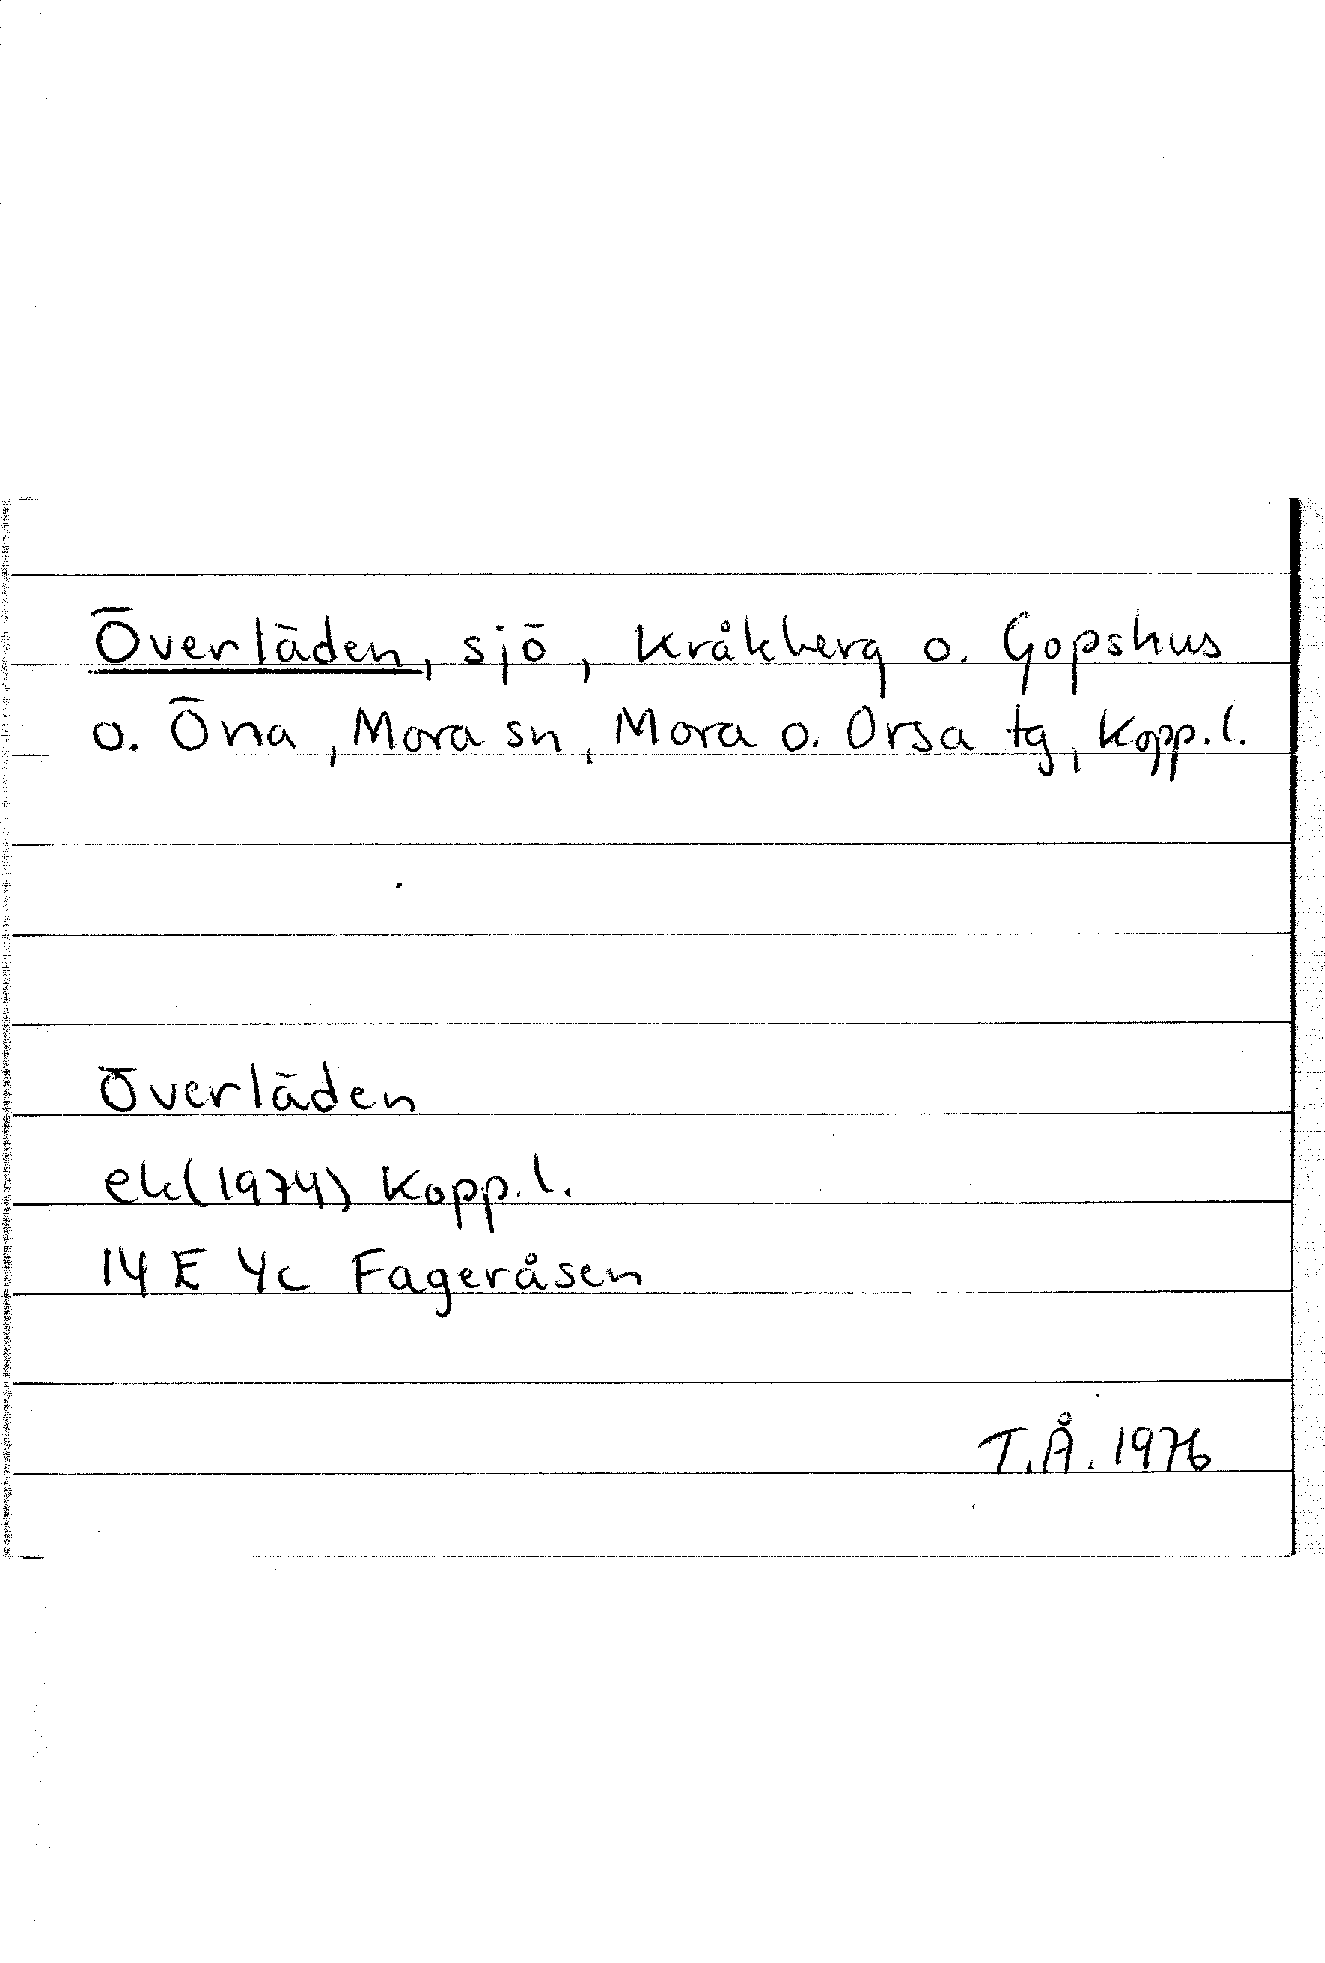 Överläden, sjö, Kråkberg o. Gopshus
o. Öna, Mora sn, Mora o. Orsa tg, Kopp.l.
Överläden
ek(1974) Kopp.l.
14 E 4c Fageråsen
T.Å. 1976